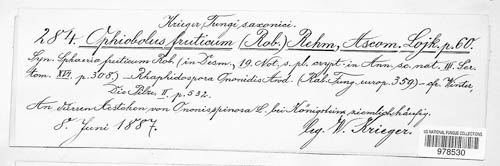 Krieger, Fungi saxonici.
284. Ophiobolus fruticum (Rob.) Rehm, Ascom. Lojk. p. 60.
Syn. Sphaeria fruticum Rob. (in Desm., 19. Not. s. pl. crypt. in Ann. sc. nat. III. Ser.
tom. XVI. p. 308) — Rhaphidospora Ononidis Awd. (Rab. Fung. europ. 359) — cfr. Winter,
Die Pilze II. p. 532.
An dürren Aestchen von Ononis spinosa L. bei Königstein, ziemlich häufig.
8. Juni 1887. leg. W. Krieger.
US NATIONAL FUNGUS COLLECTIONS
978530